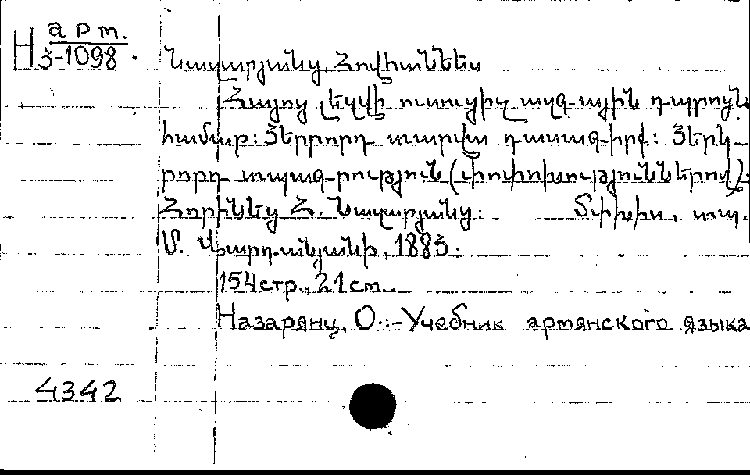 Н арт.
3-1098.
Նազարյանց Հովհաննես
Հայոց լեզվի ուսուցիչ ազգային դպրոցնե
համար: Յերրորդ տարվա դասագիրք: Յերկ-
րորդ տպագրություն (փոփոխություններով).
Հորինեց Հ. Նազարյանց. Տփխիս, տպ.
Մ. Վարդանյանի, 1883.
154стр., 21см.
Назарянц, О.-Учебник армянского языка
4342